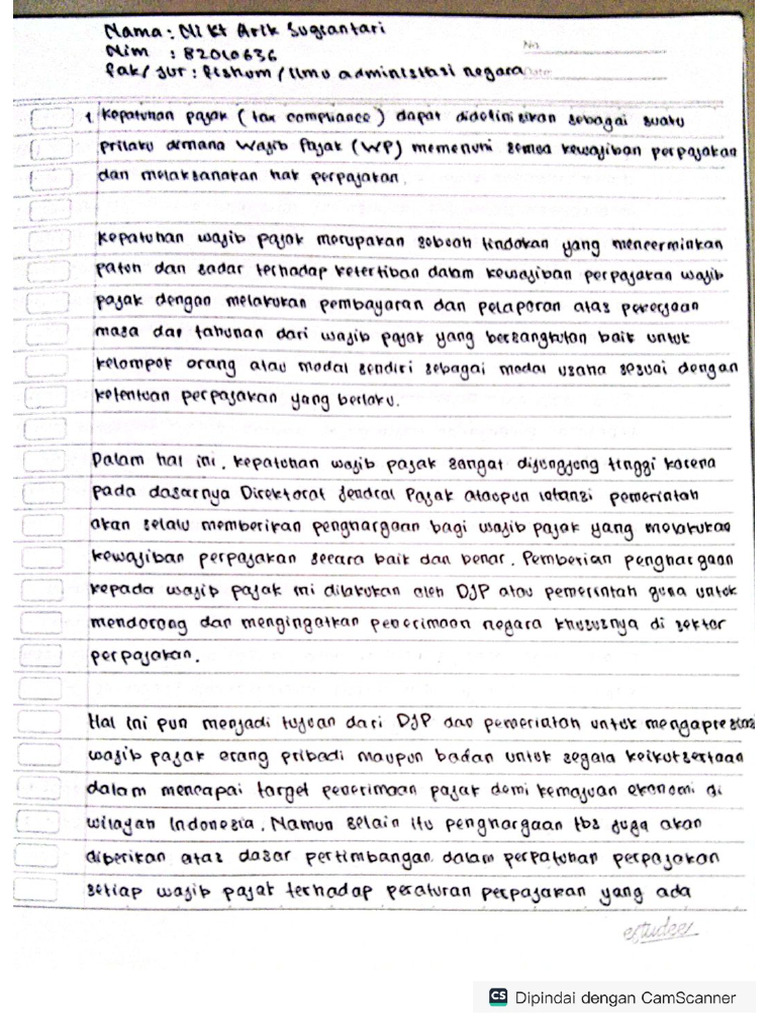 Nama : Ni Kt Arik Sugiantari
Nim : 82010636
No.
Fak/Jur : Fishum / Ilmu administrasi negara
Date:
1. Kepatuhan pajak (tax compliance) dapat didefinisikan sebagai suatu
prilaku dimana Wajib Pajak (WP) memenuhi semua kewajiban perpajakan
dan melaksanakan hak perpajakan.
Kepatuhan wajib pajak merupakan sebuah tindakan yang mencerminkan
patuh dan sadar terhadap ketertiban dalam kewajiban perpajakan wajib
pajak dengan melakukan pembayaran dan pelaporan atas pekerjaan
masa dar tahunan dari wajib pajak yang bersangkutan baik untuk
kelompok orang atau modal sendiri sebagai modal usaha sesuai dengan
ketentuan perpajakan yang berlaku.
Dalam hal ini, kepatuhan wajib pajak sangat dijunggjung tinggi karena
pada dasarnya Direktorat Jendral Pajak ataupun intansi pemerintah
akan selalu memberikan penghargaan bagi wajib pajak yang melakukan
kewajiban perpajakan secara baik dan benar. Pemberian penghargaan
kepada wajib pajak ini dilakukan oleh DJP atau pemerintah guna untuk
mendorong dan mengingatkan penerimaan negara khususnya di sektor
perpajakan.
Hal ini pun menjadi tujuan dari DJP dan pemerintah untuk mengapresiasi
wajib pajak orang pribadi maupun badan untuk segala keikutsertaan
dalam mencapai target penerimaan pajak demi kemajuan ekonomi di
wilayah Indonesia. Namun selain itu penghargaan tbs juga akan
diberikan atas dasar pertimbangan dalam perpatuhan perpajakan
setiap wajib pajak terhadap peraturan perpajakan yang ada
estudee
CS Dipindai dengan CamScanner